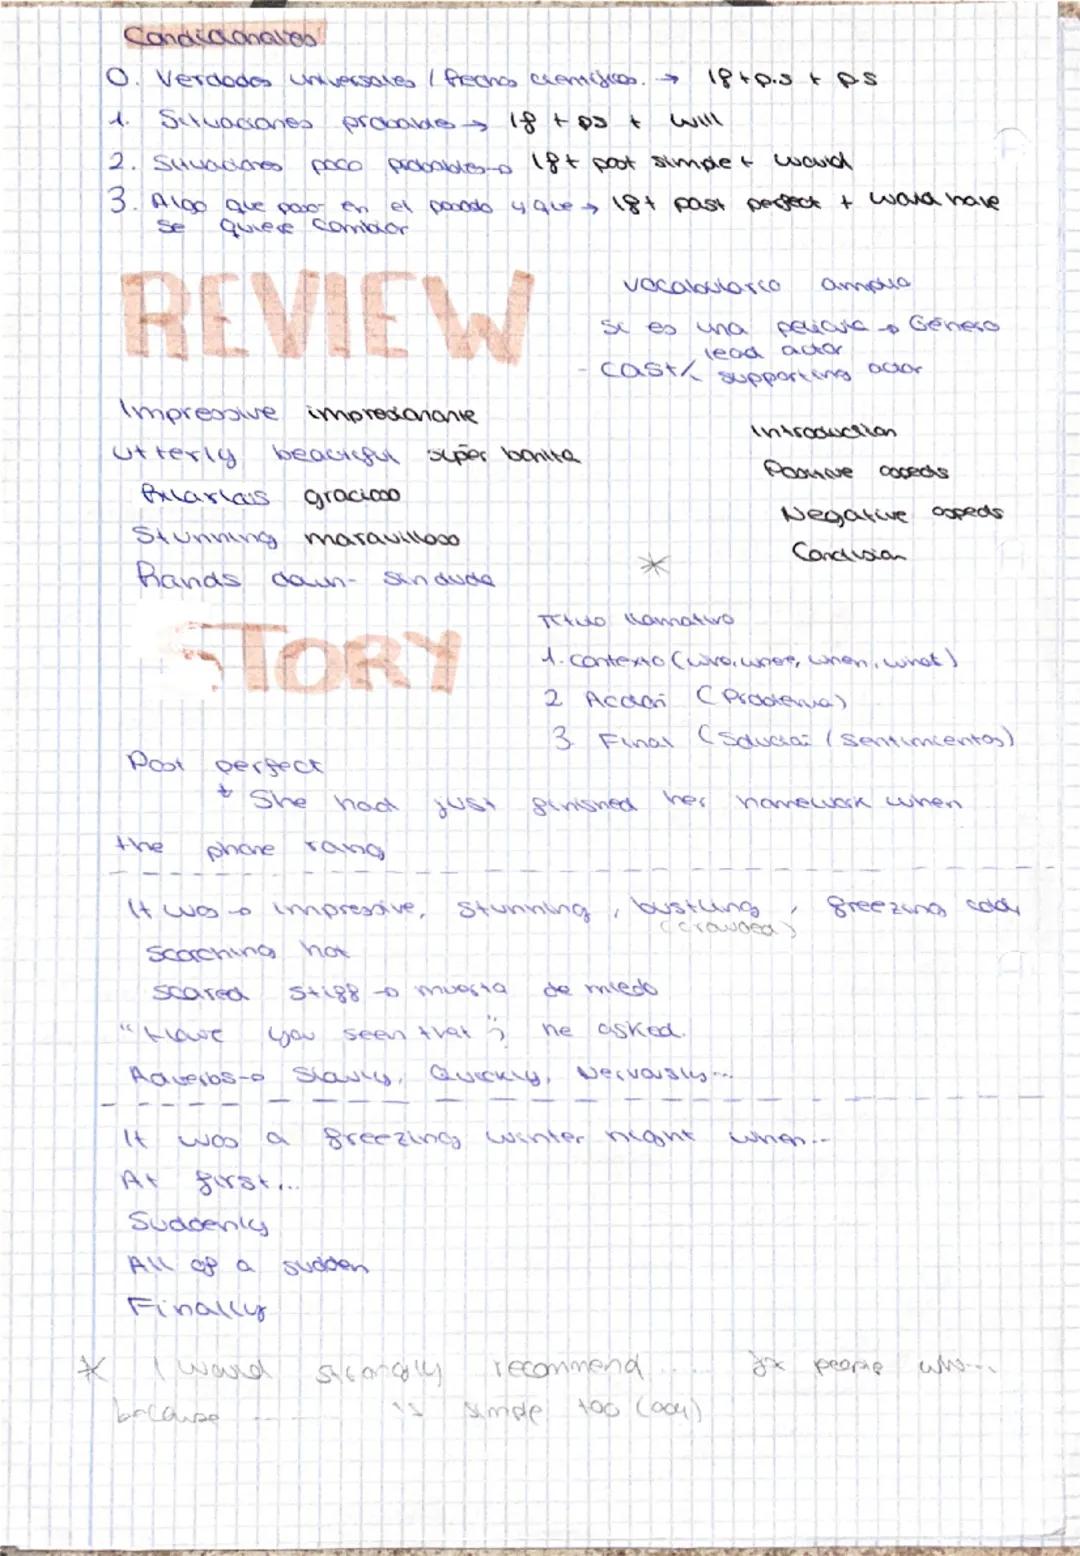 Condicionales
0. Verdades universales / hechos científicos. → If + p.s + p.s
1. Situaciones probables → If + ps + will
2. Situaciones poco probables → If + past simple + would
3. Algo que pasó en el pasado y que → If + past perfect + would have
se quiere cambiar
REVIEW
vocabulario amplio
si es una película → Género
- cast < lead actor
supporting actor
Impressive impresionante
Utterly beautiful súper bonita
Hilarious gracioso
Stunning maravilloso
Hands down - sin duda
Introduction
Positive aspects
Negative aspects
Conclusion
*
STORY
Título llamativo
1. Contexto (who, where, when, what)
2 Acción (Problema)
3. Final (Solución / Sentimientos)
Past perfect
+ She had just finished her homework when
the phone rang
It was → impressive, stunning, bustling, freezing cold,
(crowded)
scorching hot
scared stiff → muerta de miedo
"Have you seen that", he asked.
Adverbs → Slowly, Quickly, Nervously...
It was a freezing winter night when...
At first...
Suddenly
All of a sudden
Finally
* I would strongly recommend ... for people who...
because ... is simple too (adj)